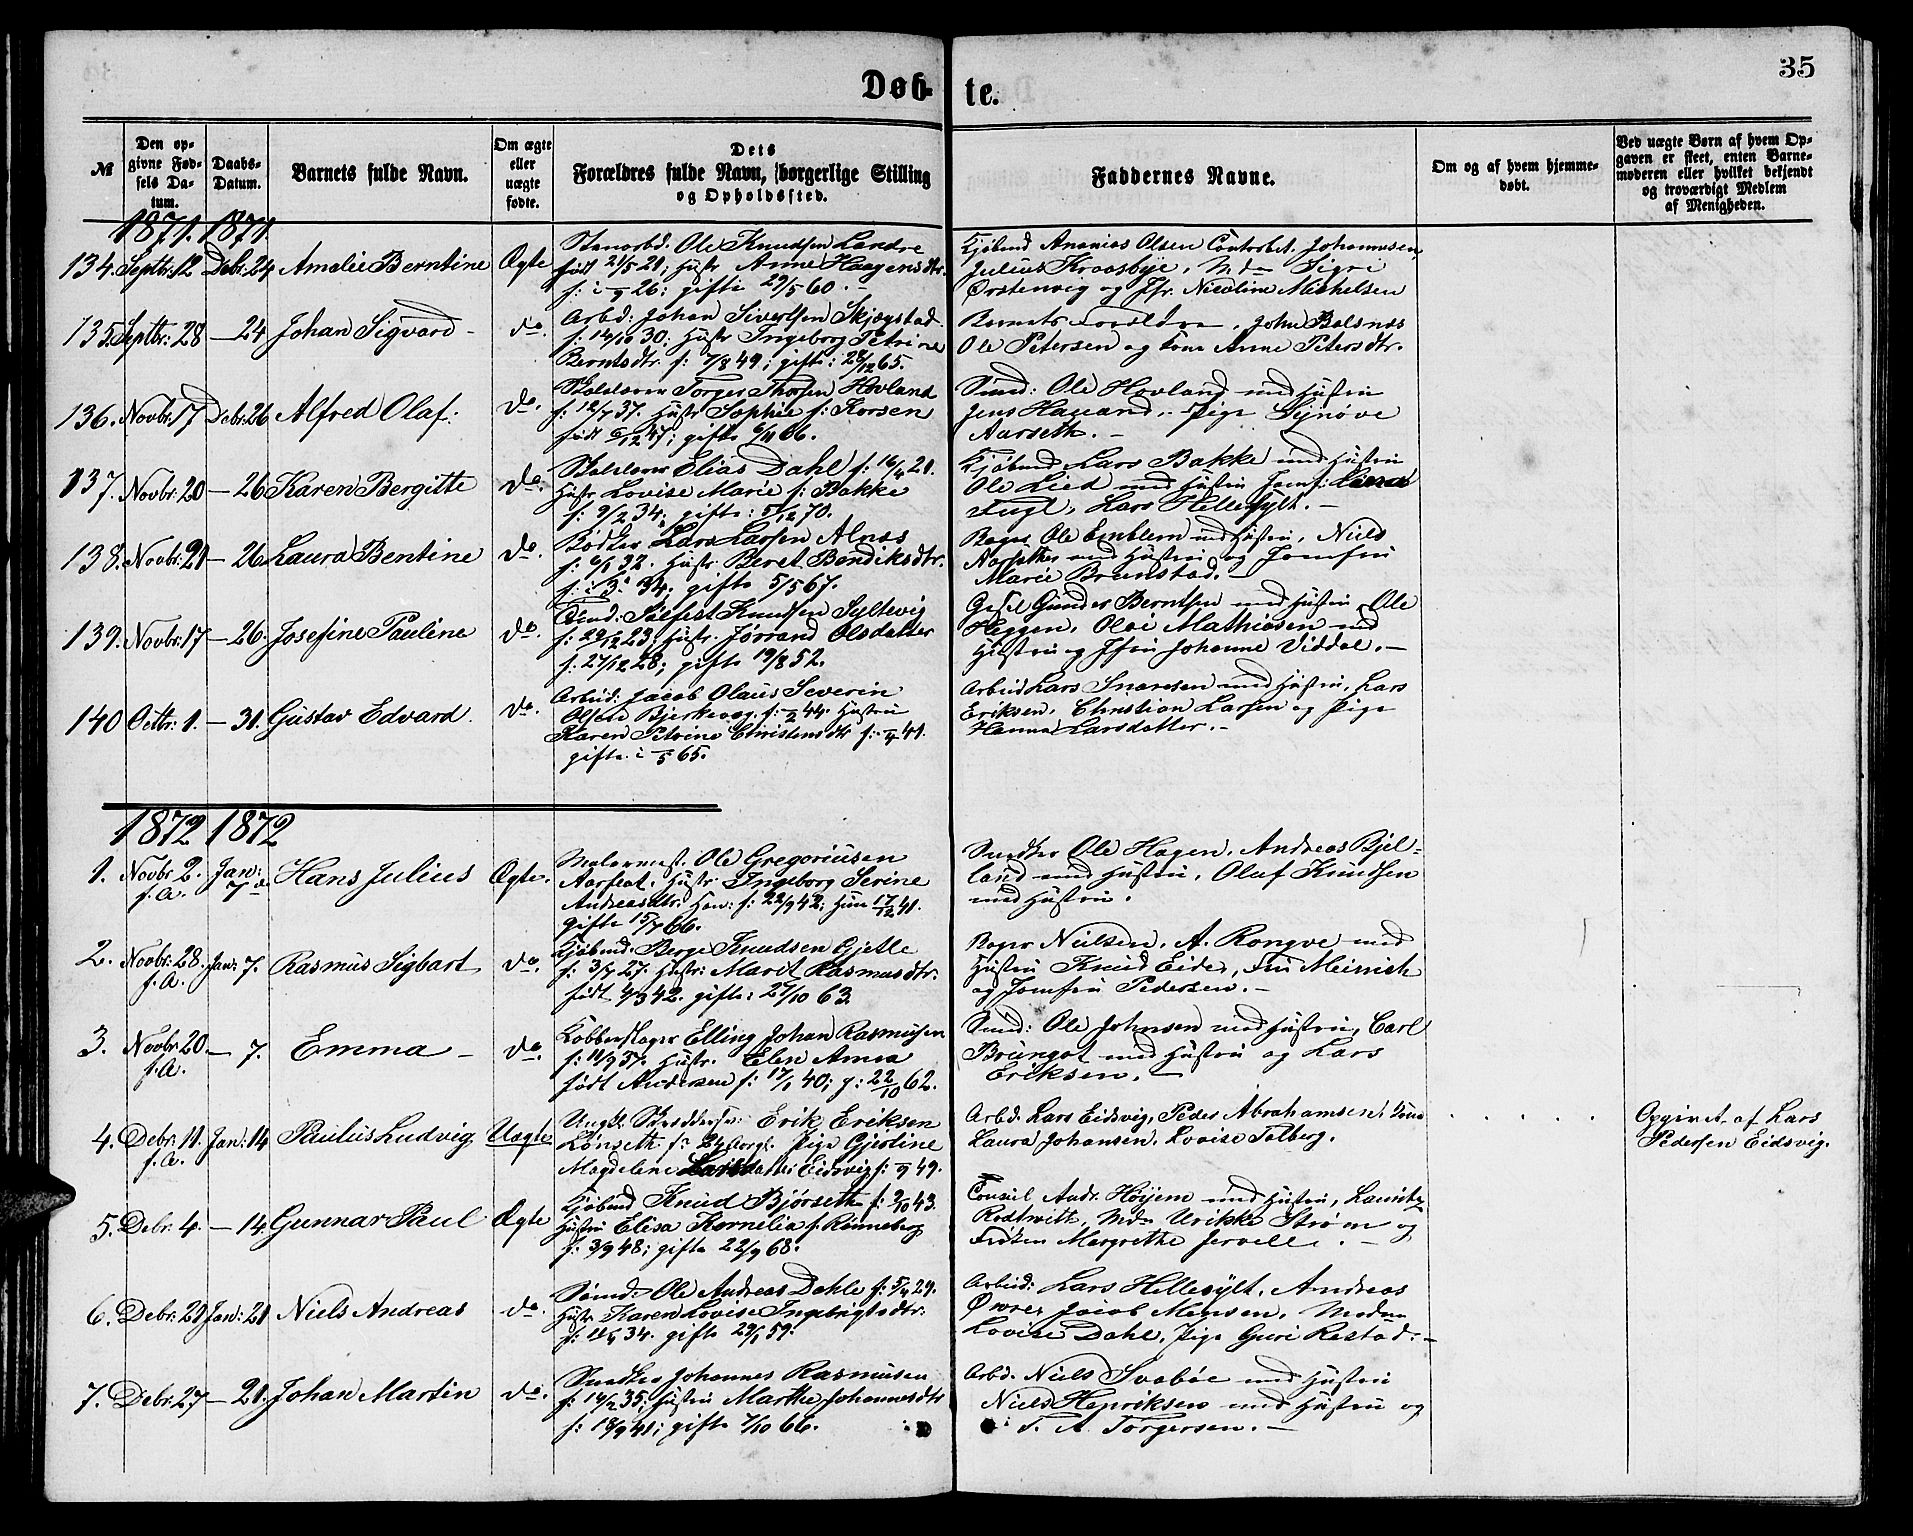 35
Døb-te.
№
Den op-
givne Fød-
sels Da-
tum.
Daabs-
Datum.
Barnets fulde Navn.
Om ægte
eller
uægte
fødte.
Dets
Forældres fulde Navn, borgerlige Stilling
og Opholdssted.
Faddernes Navne.
Om og af hvem hjemme-
døbt.
Ved uægte Børn af hvem Op-
gaven er skeet, enten Barne-
moderen eller hvilket bekjendt
og troværdigt Medlem
af Menigheden.
1871. 1871.
134. Septbr: 12 Debr: 24 Amalie Berntine Ægte
Ole Knudsen Landre
født 21/5 21; Hustr Anne Haagensdtr.
f: i 9 26; gifte 29/5 60.
Kjøbmd Ananias Olsen Johannesen,
Julius Kraasbye, Sigri
Ørstenvig og Jfr. Nicoline Mishelsen
135. Septbr: 28 — 24 Johan Sigvard do.
Arbd: Johan Sivertsen Skjegstad
f: 14/10 30; Hustr Ingeborg Petrine
Berntsdtr f: 7/8 49; gifte: 28/12 65.
Barnets Forældre, John Balsnes
Ole Petersen og Anne Petersdtr.
136. Novbr: 17 Debr: 26 Alfred Olaf: do.
Skolelærer Torger Thorsen Hovland
f: 12/7 37. Hustr Sophie f: Korsen
født 6/12 47; gifte 6/11 66.
Smed: Ole Hovland med Hustru
Jens Hageand, Pige Synøve
Aarseth.
137. Novbr: 20 — 26 Karen Bergitte do.
Skolelærer Elias Dahl f: 16/4 21.
Hustr Lovise Marie f: Bakke
f: 9/2 34; gifte: 5/12 70.
Kjøbmd Lars Bakke med Hustru
Ole Lied med Hustru Jomf:
Fugl, Lars Hellesylt.
138. Novbr: 21 — 26 Laura Bentine do.
Bødker Lars Larsen Alnes
f: 6/1 32. Hustr. Beret Bendiksdtr.
f: i 3 34; gifte 5/5 67.
Bager Ole Emblem med Hustru, Niels
med Hustru og Jomfru
Marie Brunstad.
139. Novbr: 17 — 26 Josefine Pauline do.
Knudsen Syltevig
f: 29/12 23; Hustr. Jørrand Olsdatter
f: 27/12 28; gifte 19/8 52.
Gunder Berntsen med Hustru Ole
Heggen, Oloi Mathiesen med
Hustru og Jfru Johanne Viddal.
140 Octbr: 1. — 31. Gustav Edvard do.
Arbeid: Jacob Olaus Severin
Olsen Bjerkevag f: 2 44. Hustru
Karen Petrine Christensdtr f: 4 41.
gifte i 5 65.
Arbeid Lars Snaresen med Hustru, Lars
Eriksen, Christian Larsen og Pige
Hanna Larsdatter.
1872 1872
1. Novbr 2. Jan: Hans Julius Ægte.
f.A. 7de
Malermest: Ole Gregoriusen
Aarseat. Hustr Ingeborg Serine
Andreasdtr. Han: f: 22/9 42; Hun 17/12 41.
gifte 15/7 66.
Snedker Ole Hagen, Andreas Bjel-
land med Hustru, Oluf Knudsen
med Hustru.
2. Novbr: 28 Jan: 7. Rasmus Sigbart do.
f.A.
Kjøbmd. Berge Knudsen Gjelle
f: 3/7 27. Hustr: Maret Rasmusdtr:
født 4/3 42. gifte: 27/10 63.
Bager Nielsen, A. Rongve med
Hustru Knud Eides, Fru Meinich
og Jomfru Pedersen.
3. Novbr: 20 — 7. Emma — do.
f.A.
Kobberslager Elling Johan Rasmusen
f: 11/9 37. Hustr. Elen Anna
født Andersen f: 17/1 40; g: 22/10 62.
Smed: Ole Johnsen med Hustru, Carl
Brungot med Hustru og Lars
Eriksen.
4. Debr: 11. Jan: 14 Paulus Ludvig Uægte
f.A.
Ungk. Erik Eriksen
Lønseth f: 24 Aar gl. Pige Gjertine
Magdelene Larsdatter Eidsvig f: 9 49.
Arbd. Lars Eidsvig, Peder Abrahamsen,
Laura Johansen, Lovise Talberg.
Opgivet af Lars
Pedersen Eidsvig.
5. Debr: 4. — 14. Gunnar Paul Ægte
Kjøbmd Knud Bjørseth f: 2/10 43.
Hustru Elisa Kornelia f: Rønneberg
f: 3/9 48; gifte 22/9 68.
Consul Andr. Høyem med Hustru, Lauritz
Rodtwitt, Mdm Urikke Strøm og
Frøken Margrethe Jervell.
6. Debr: 29 Jan: 21 Niels Andreas do.
Sømd: Ole Andreas Dahle f: 5/4 29.
Hustr Karen Lovise Ingebrigtsdtr:
34. gifte 29/1 59.
Arbeid: Lars Hellesylt, Andreas
Øwre, Jacob Monsen, Madm
Lovise Dahl, Pige Guri Rastad.
7. Debr: 27 — 21. Johan Martin do.
Snedker Johannes Rasmusen
f: 14/2 35; Hustru Marthe Johannesdtr
f: 18/9 41; gifte 7/10 66.
Arbd. Niels Svabøe med Hustru
Niels Henriksen med Hustru og
T. A. Torgersen.